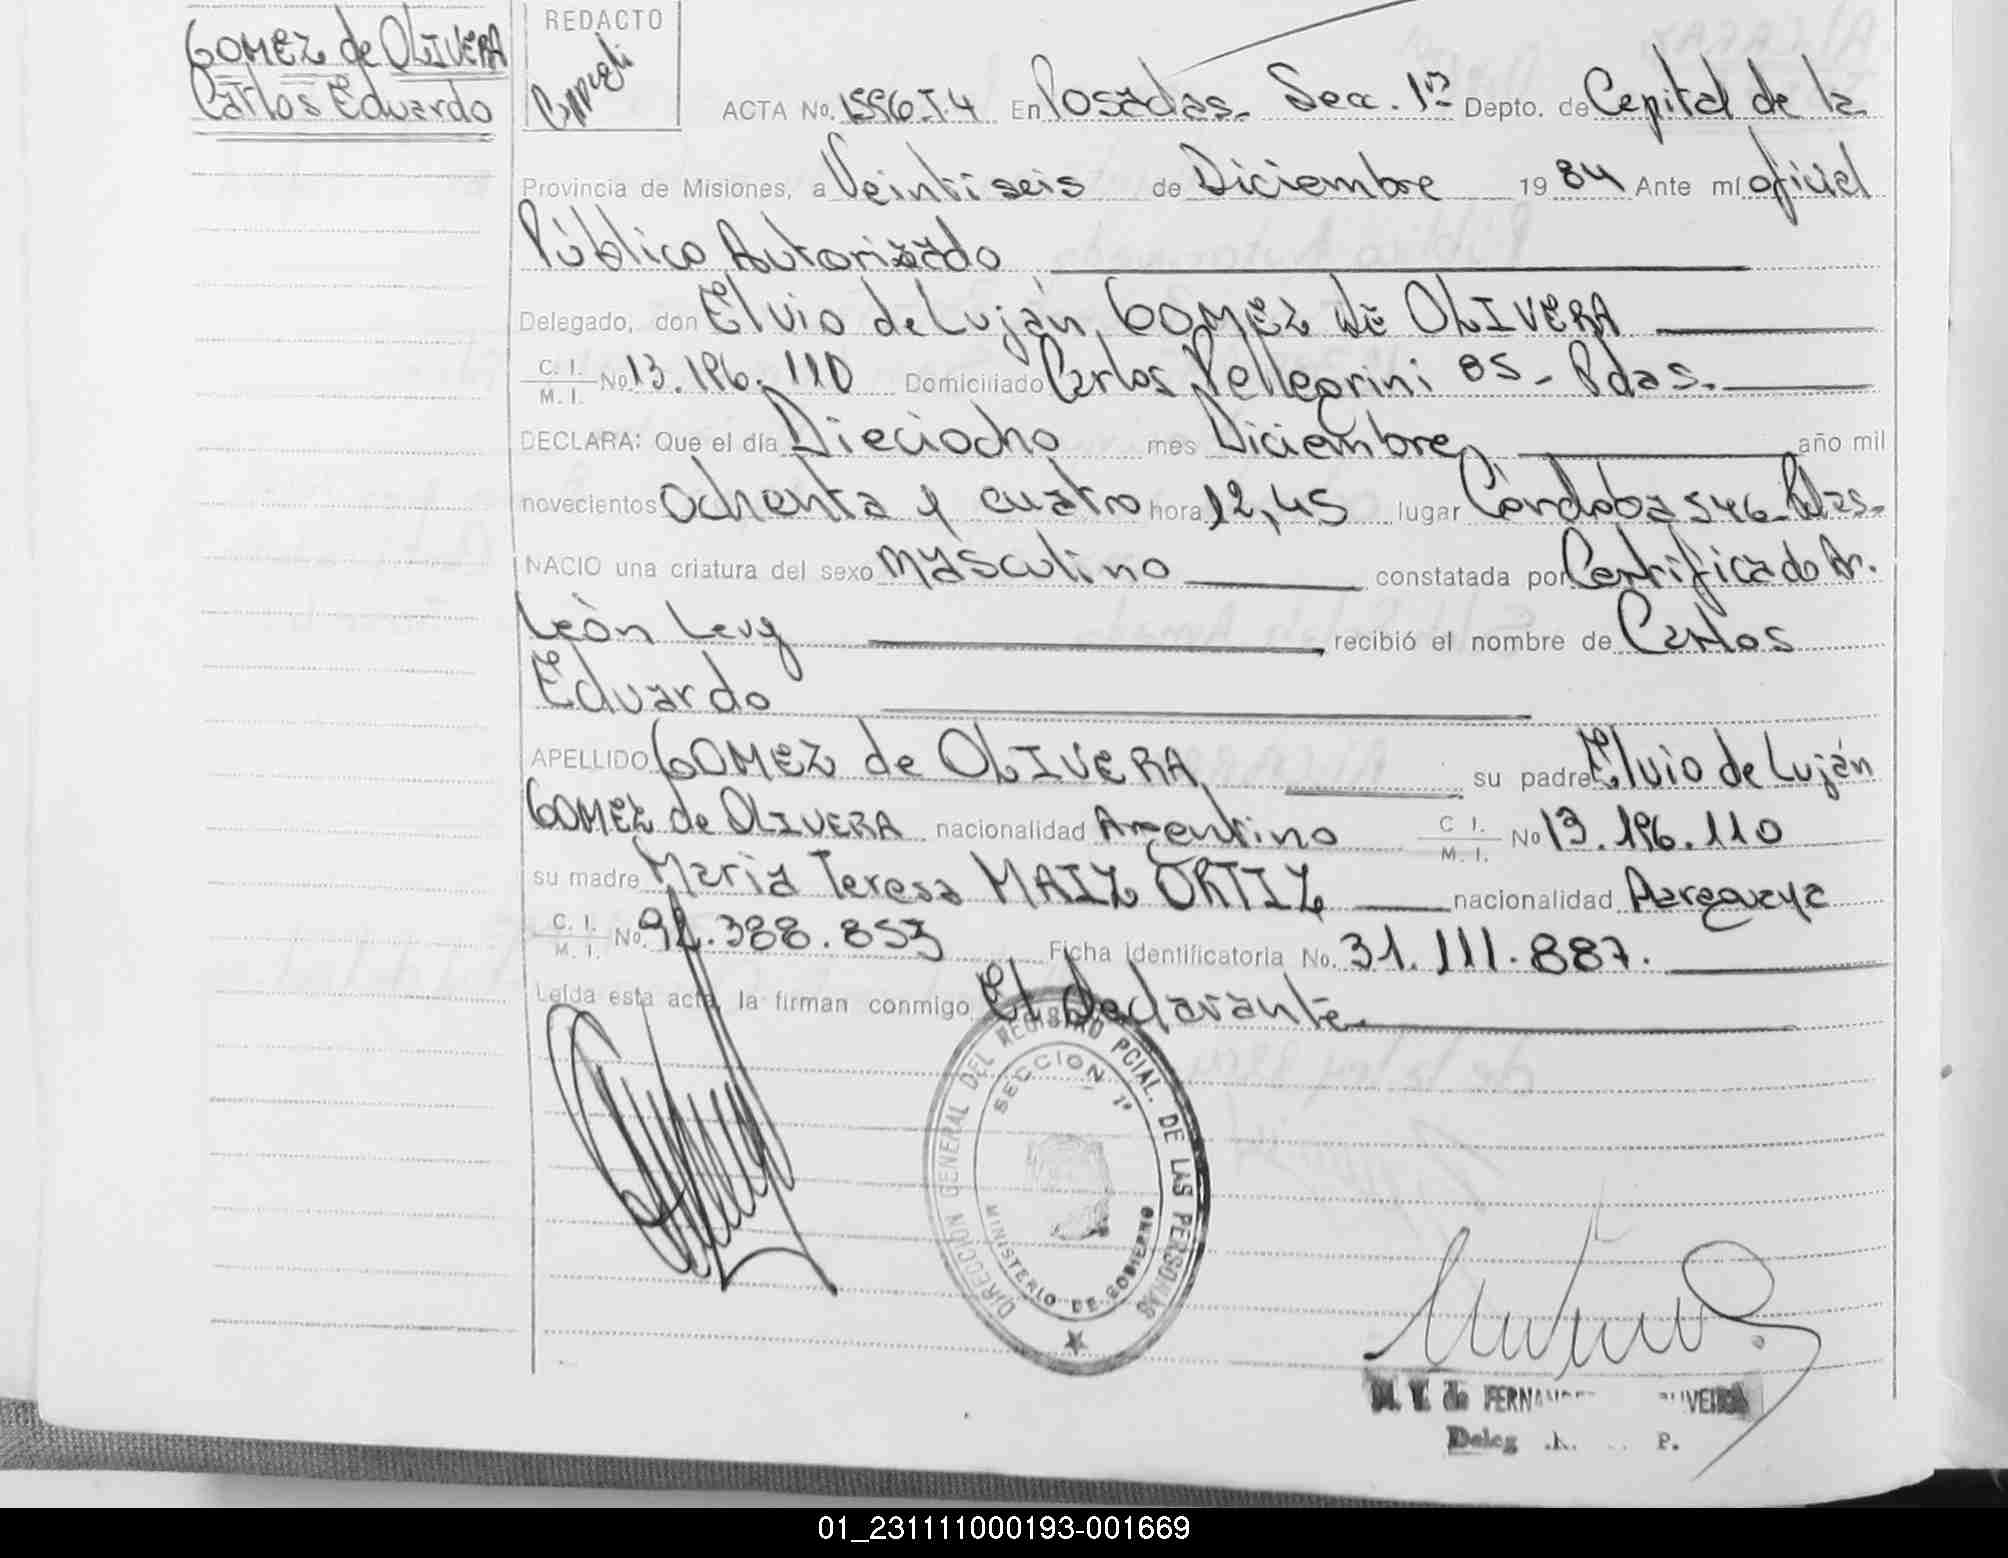 GOMEZ de OLIVERA
Carlos Eduardo
REDACTO
ACTA No. 1596-T.4 En Posadas. Secc. 1ª Depto. de Capital de la
Provincia de Misiones, a Veintiseis de Diciembre 1984 Ante mí oficial
Público Autorizado
Delegado, don Elvio de Luján GOMEZ de OLIVERA
C. I. / M. I. No 13.196.110 Domiciliado Carlos Pellegrini 85 - Pdas.
DECLARA: Que el día Dieciocho mes Diciembre año mil
novecientos ochenta y cuatro hora 12,45 lugar Córdoba 546 - Pdas.
NACIO una criatura del sexo Másculino constatada por Certificado Dr.
León Levy recibió el nombre de Carlos
Eduardo
APELLIDO GOMEZ de OLIVERA su padre Elvio de Luján
GOMEZ de OLIVERA nacionalidad Argentino C I. / M. I. No 13.196.110
su madre María Teresa MAIZ ORTIZ nacionalidad Paraguaya
C. I. / M. I. No. 92.388.853 Ficha Identificatoria No. 31.111.887.
Leída esta acta, la firman conmigo El declarante
DIRECCION GENERAL DEL REGISTRO PCIAL. DE LAS PERSONAS
SECCION 1ª
MINISTERIO DE GOBIERNO
M. de
Deleg P.
01_231111000193-001669